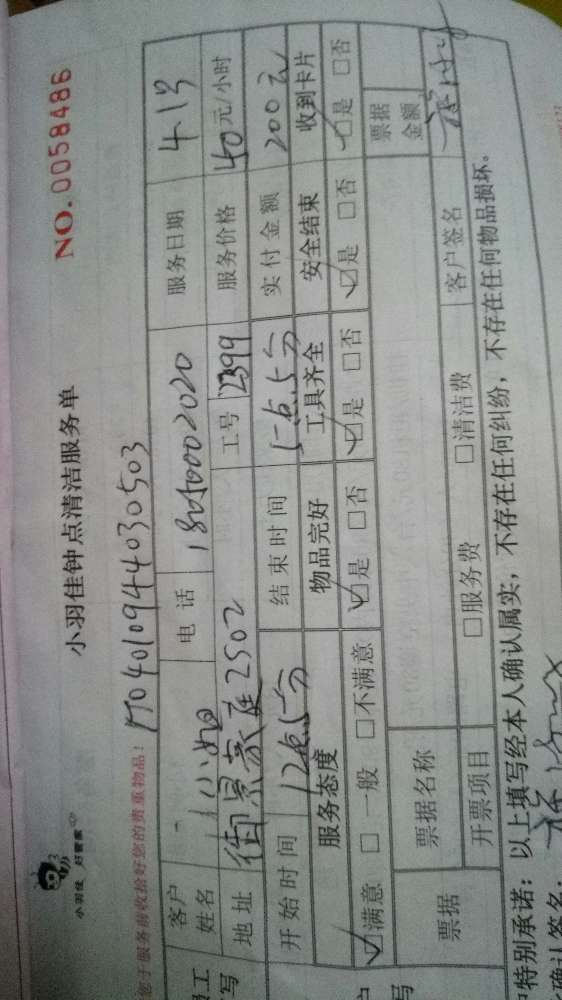 小羽佳 好管家
小羽佳钟点清洁服务单
NO.0058486
您于服务前收拾好您的贵重物品!
客户姓名 电话 18050002020 服务日期 4.13
地址 御景家庭2502 工号 2399 服务价格 40元/小时
开始时间 12点5分 结束时间 5点5分 实付金额 200元
服务态度 物品完好 工具齐全 安全结束 收到卡片
☑满意 □一般 □不满意 ☑是 □否 ☑是 □否 ☑是 □否 ☑是 □否
票据 票据名称 票据金额
开票项目 □服务费 □清洁费 客户签名
特别承诺:以上填写经本人确认属实,不存在任何纠纷,不存在任何物品损坏。
确认签名: